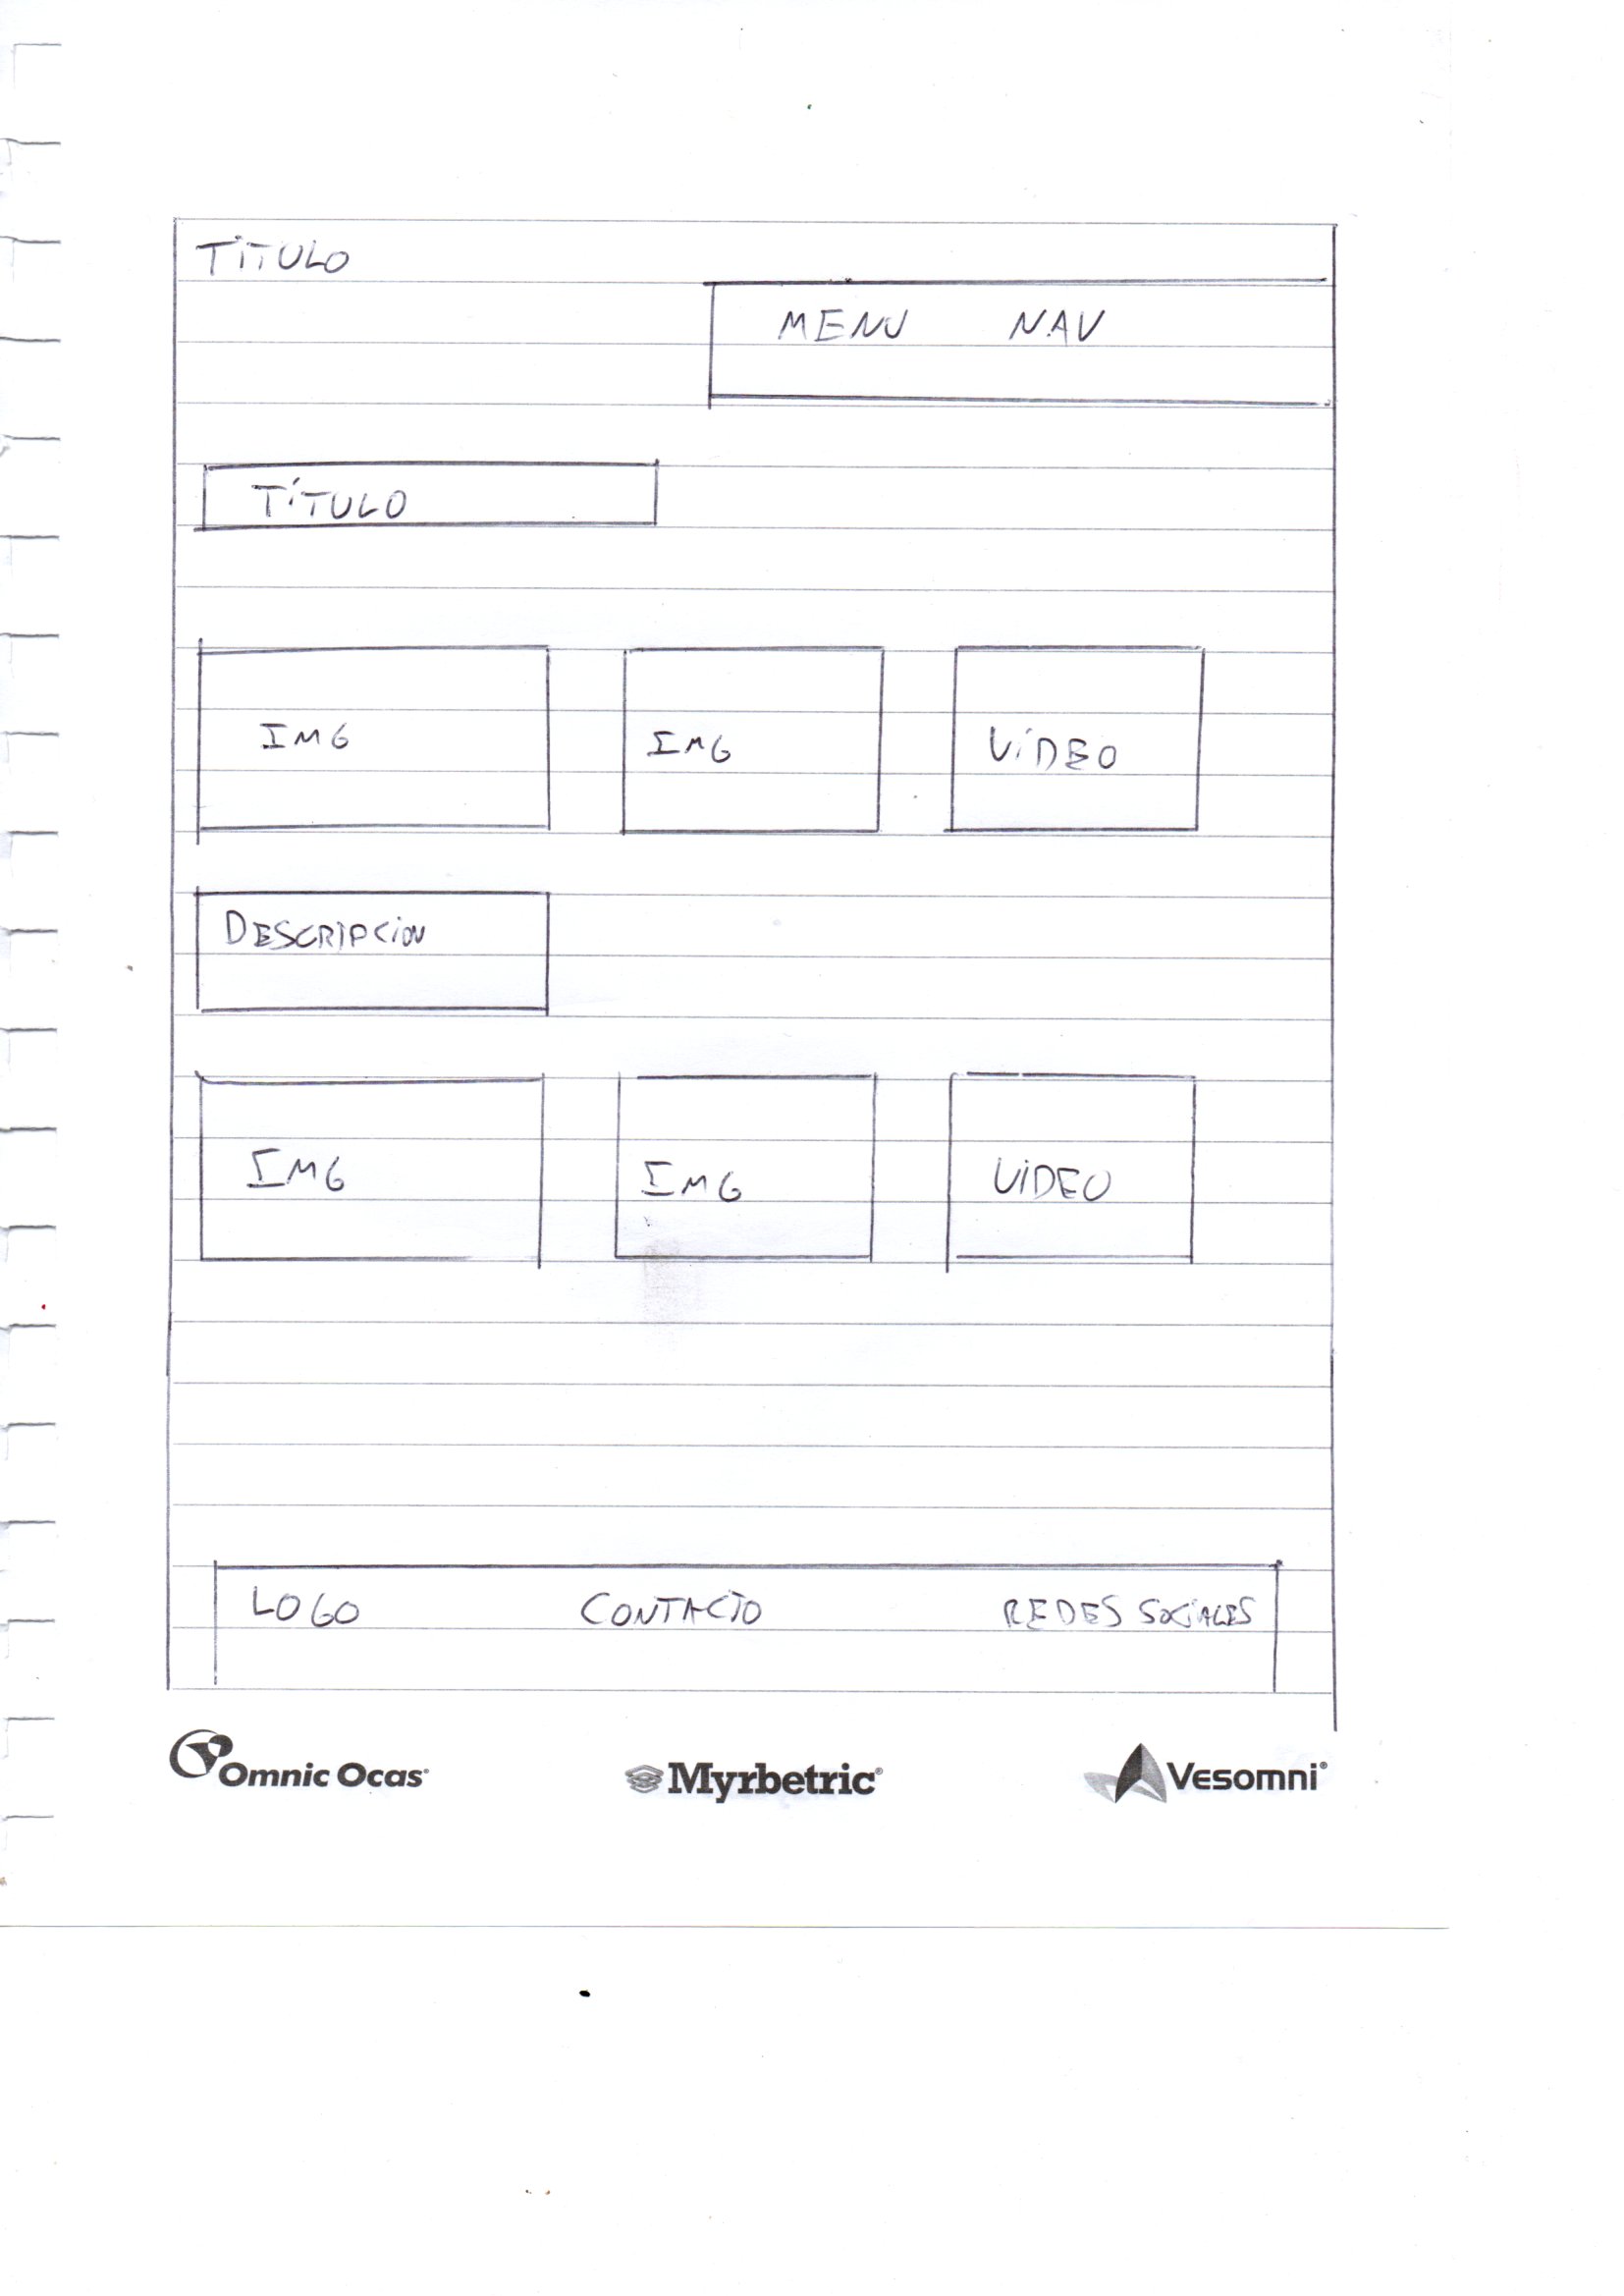 TITULO
MENU NAV
TÍTULO
IMG IMG VIDEO
DESCRIPCION
IMG IMG VIDEO
LOGO CONTACTO REDES SOCIALES
Omnic Ocas® Myrbetric® Vesomni®